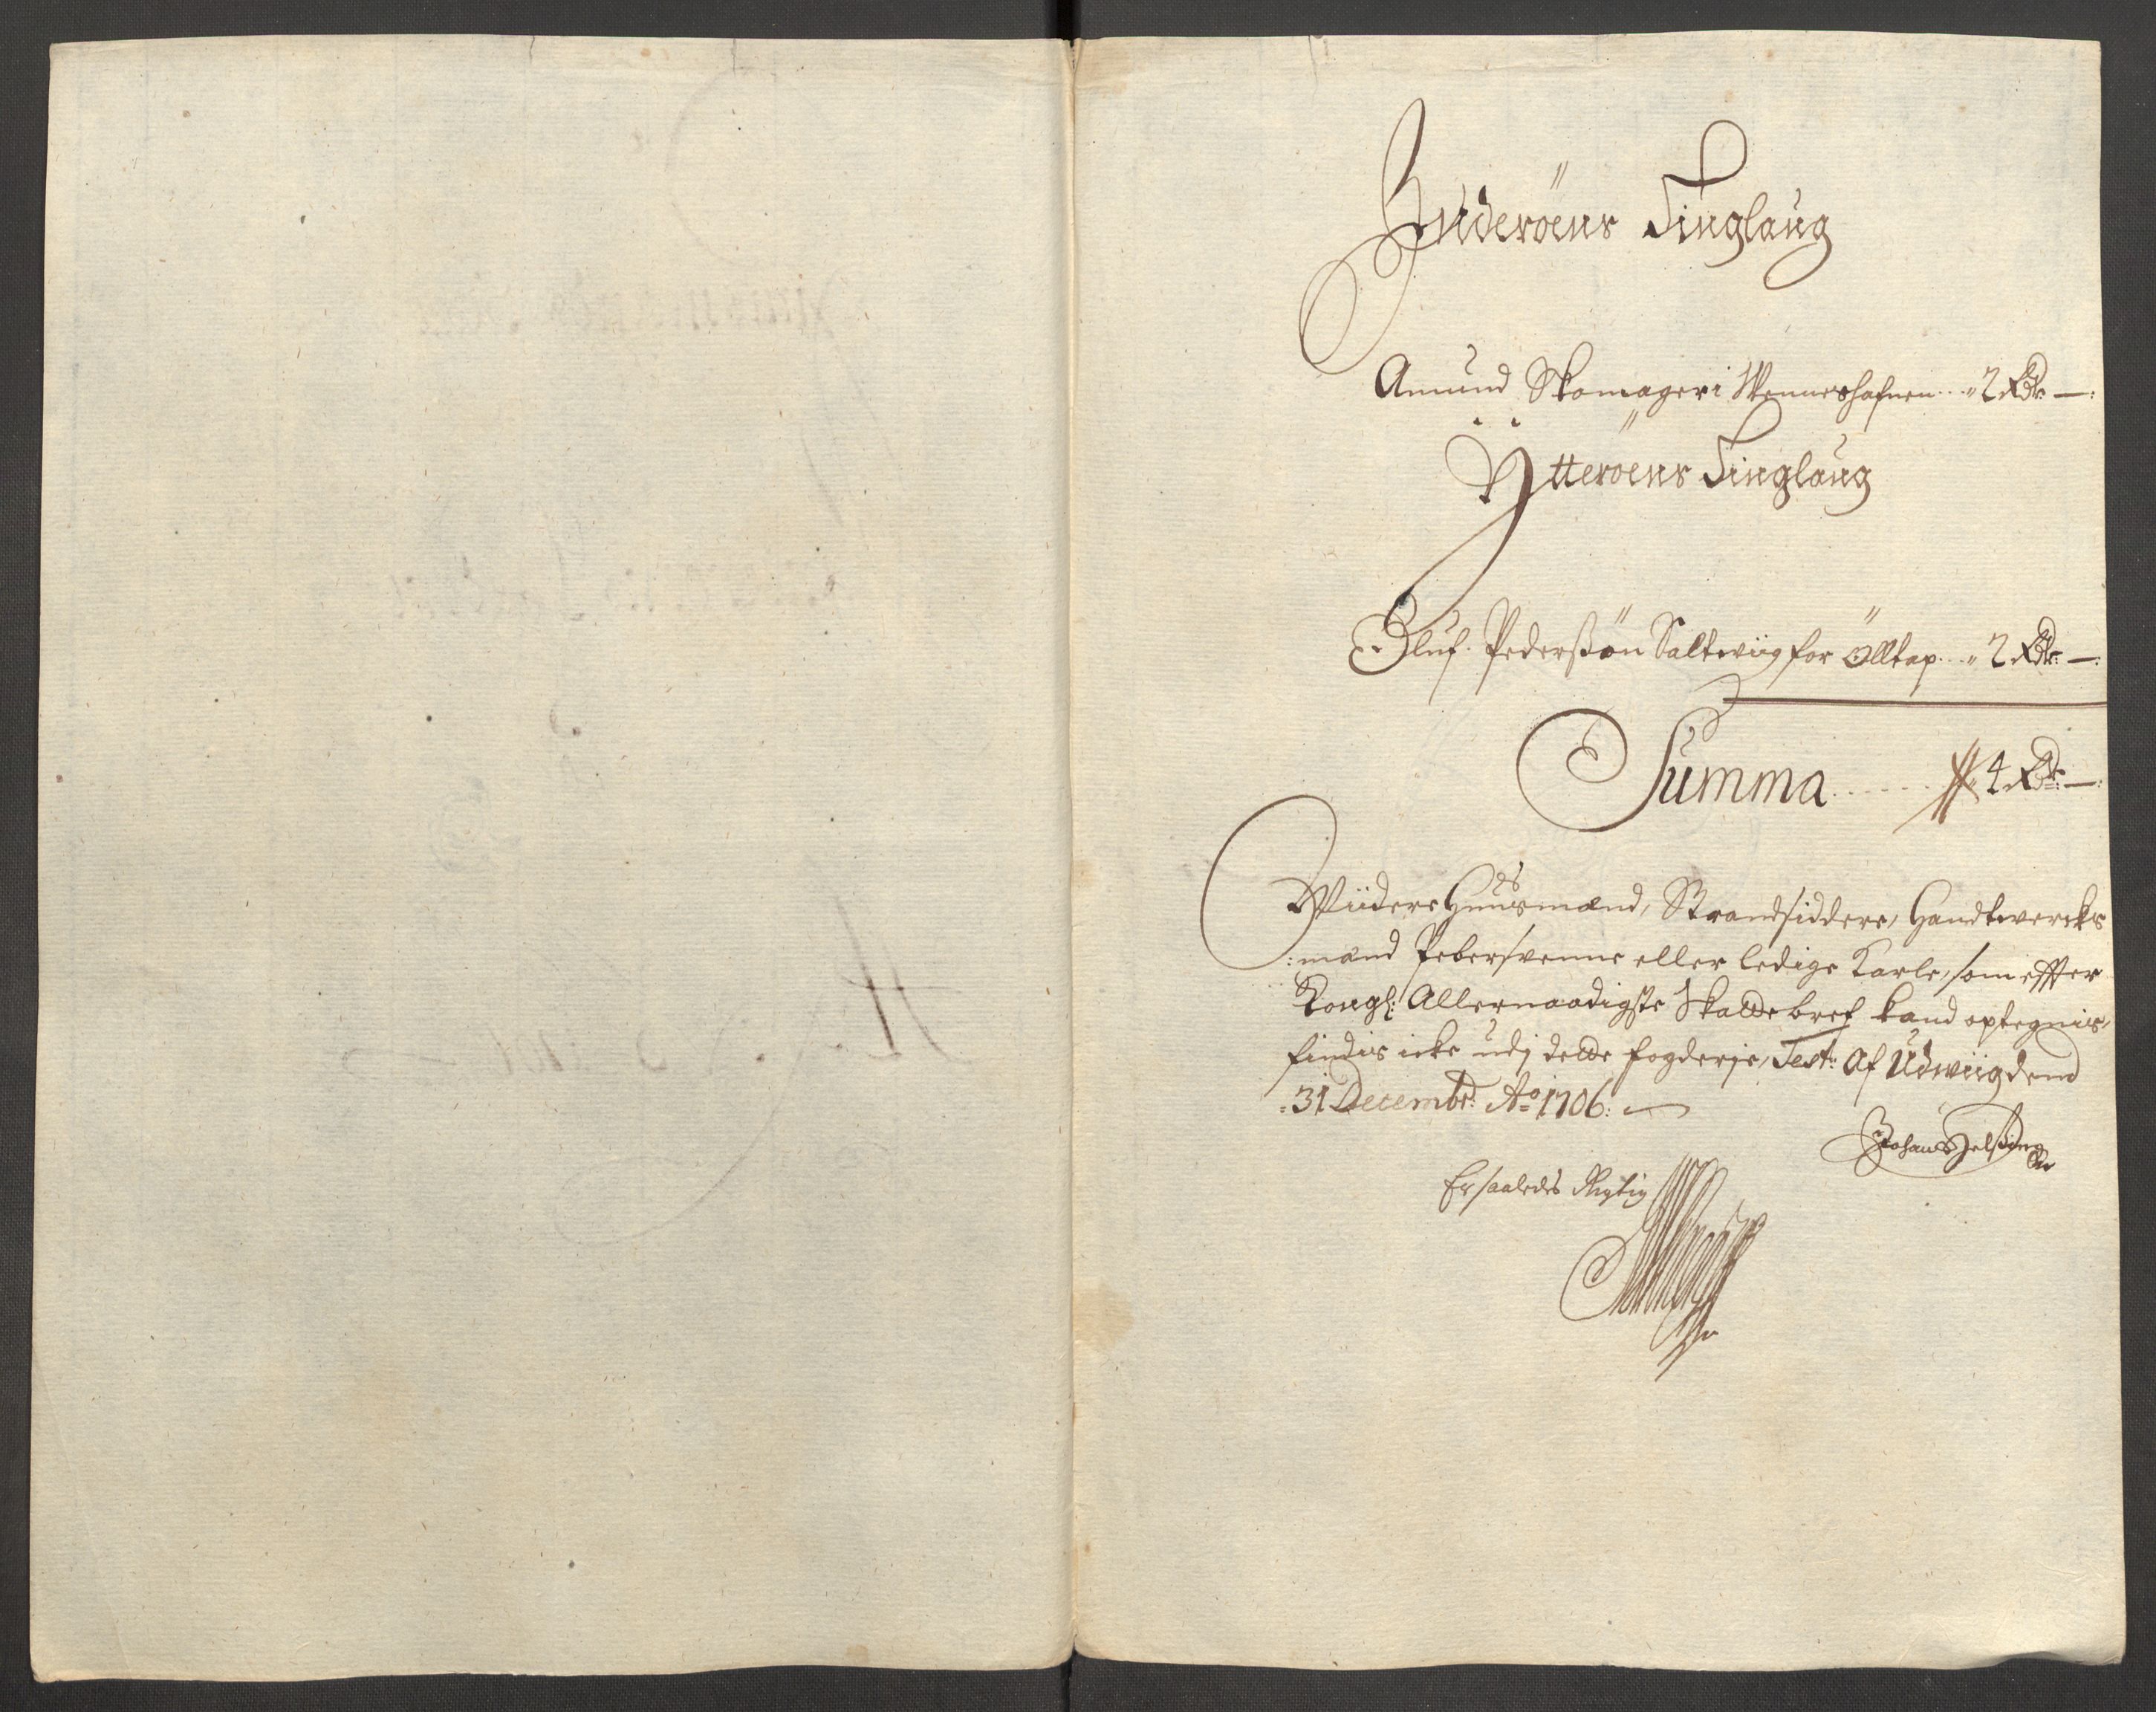 Inderöens Tinglaug
Amund Skomager i Wenneshafnen .... 2 Rdr —:
Ÿtteröens Tinglaug
Oluf Pederssön Saltwiig for Ölltap ... 2 Rdr: —:
Summa ...... 4 Rdr: —:
Wiidere Huusmænd, Strandsiddere, Handtwercks
:mænd Pebersvenne eller ledige Karle, som effter
Kongl: Allernaadigste Skatte bref kand optegnis,
findis icke udj dette fogderje, Test: Af Udwiig dend
:31 Decembr: Ao 1706: —
Er saaledes Rigtig